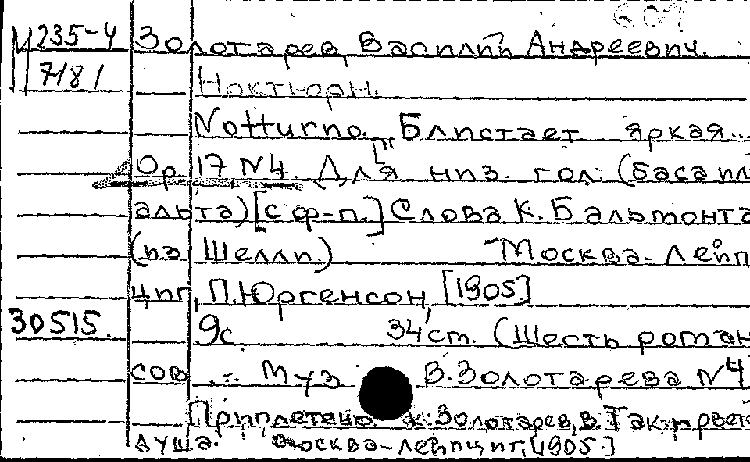 М 235-4 Золотарев, Василий Андреевич.
7181 Ноктюрн.
Notturno. Блистает яркая...
Ор. 17 N4. Для низ. гол. (баса ил
альта) [с ф-п.] Слова К. Бальмонта
(из Шелли.) Москва-Лейп
циг, П. Юргенсон, [1905]
30515. 9с. 34 ст. (Шесть роман
сов ... Муз В. Золотарева N4
Приплетено к: Золотарев, В. Так и рвет
душа. Москва-Лейпциг, [1905.]